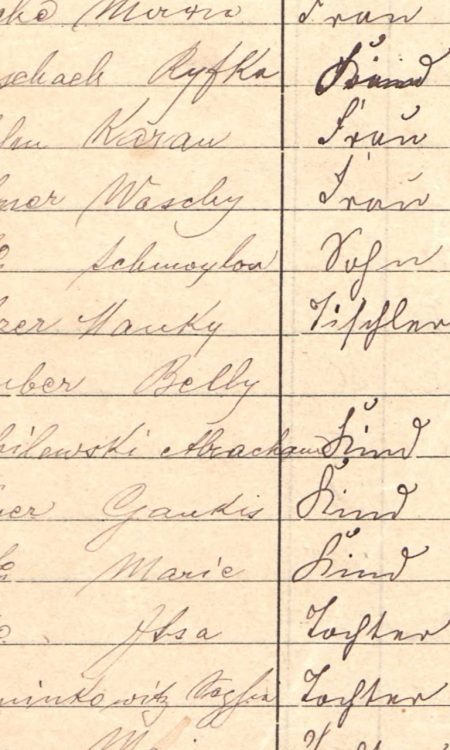 Frau
schach Ryfka Kind
Karau Frau
Waschy Frau
Schmoylow Sohn
zer Hanky Tischler
uber Belly
bilewski Abracham Kind
er Gankis Kind
Marie Kind
Ilsa Tochter
minkowitz Tochter